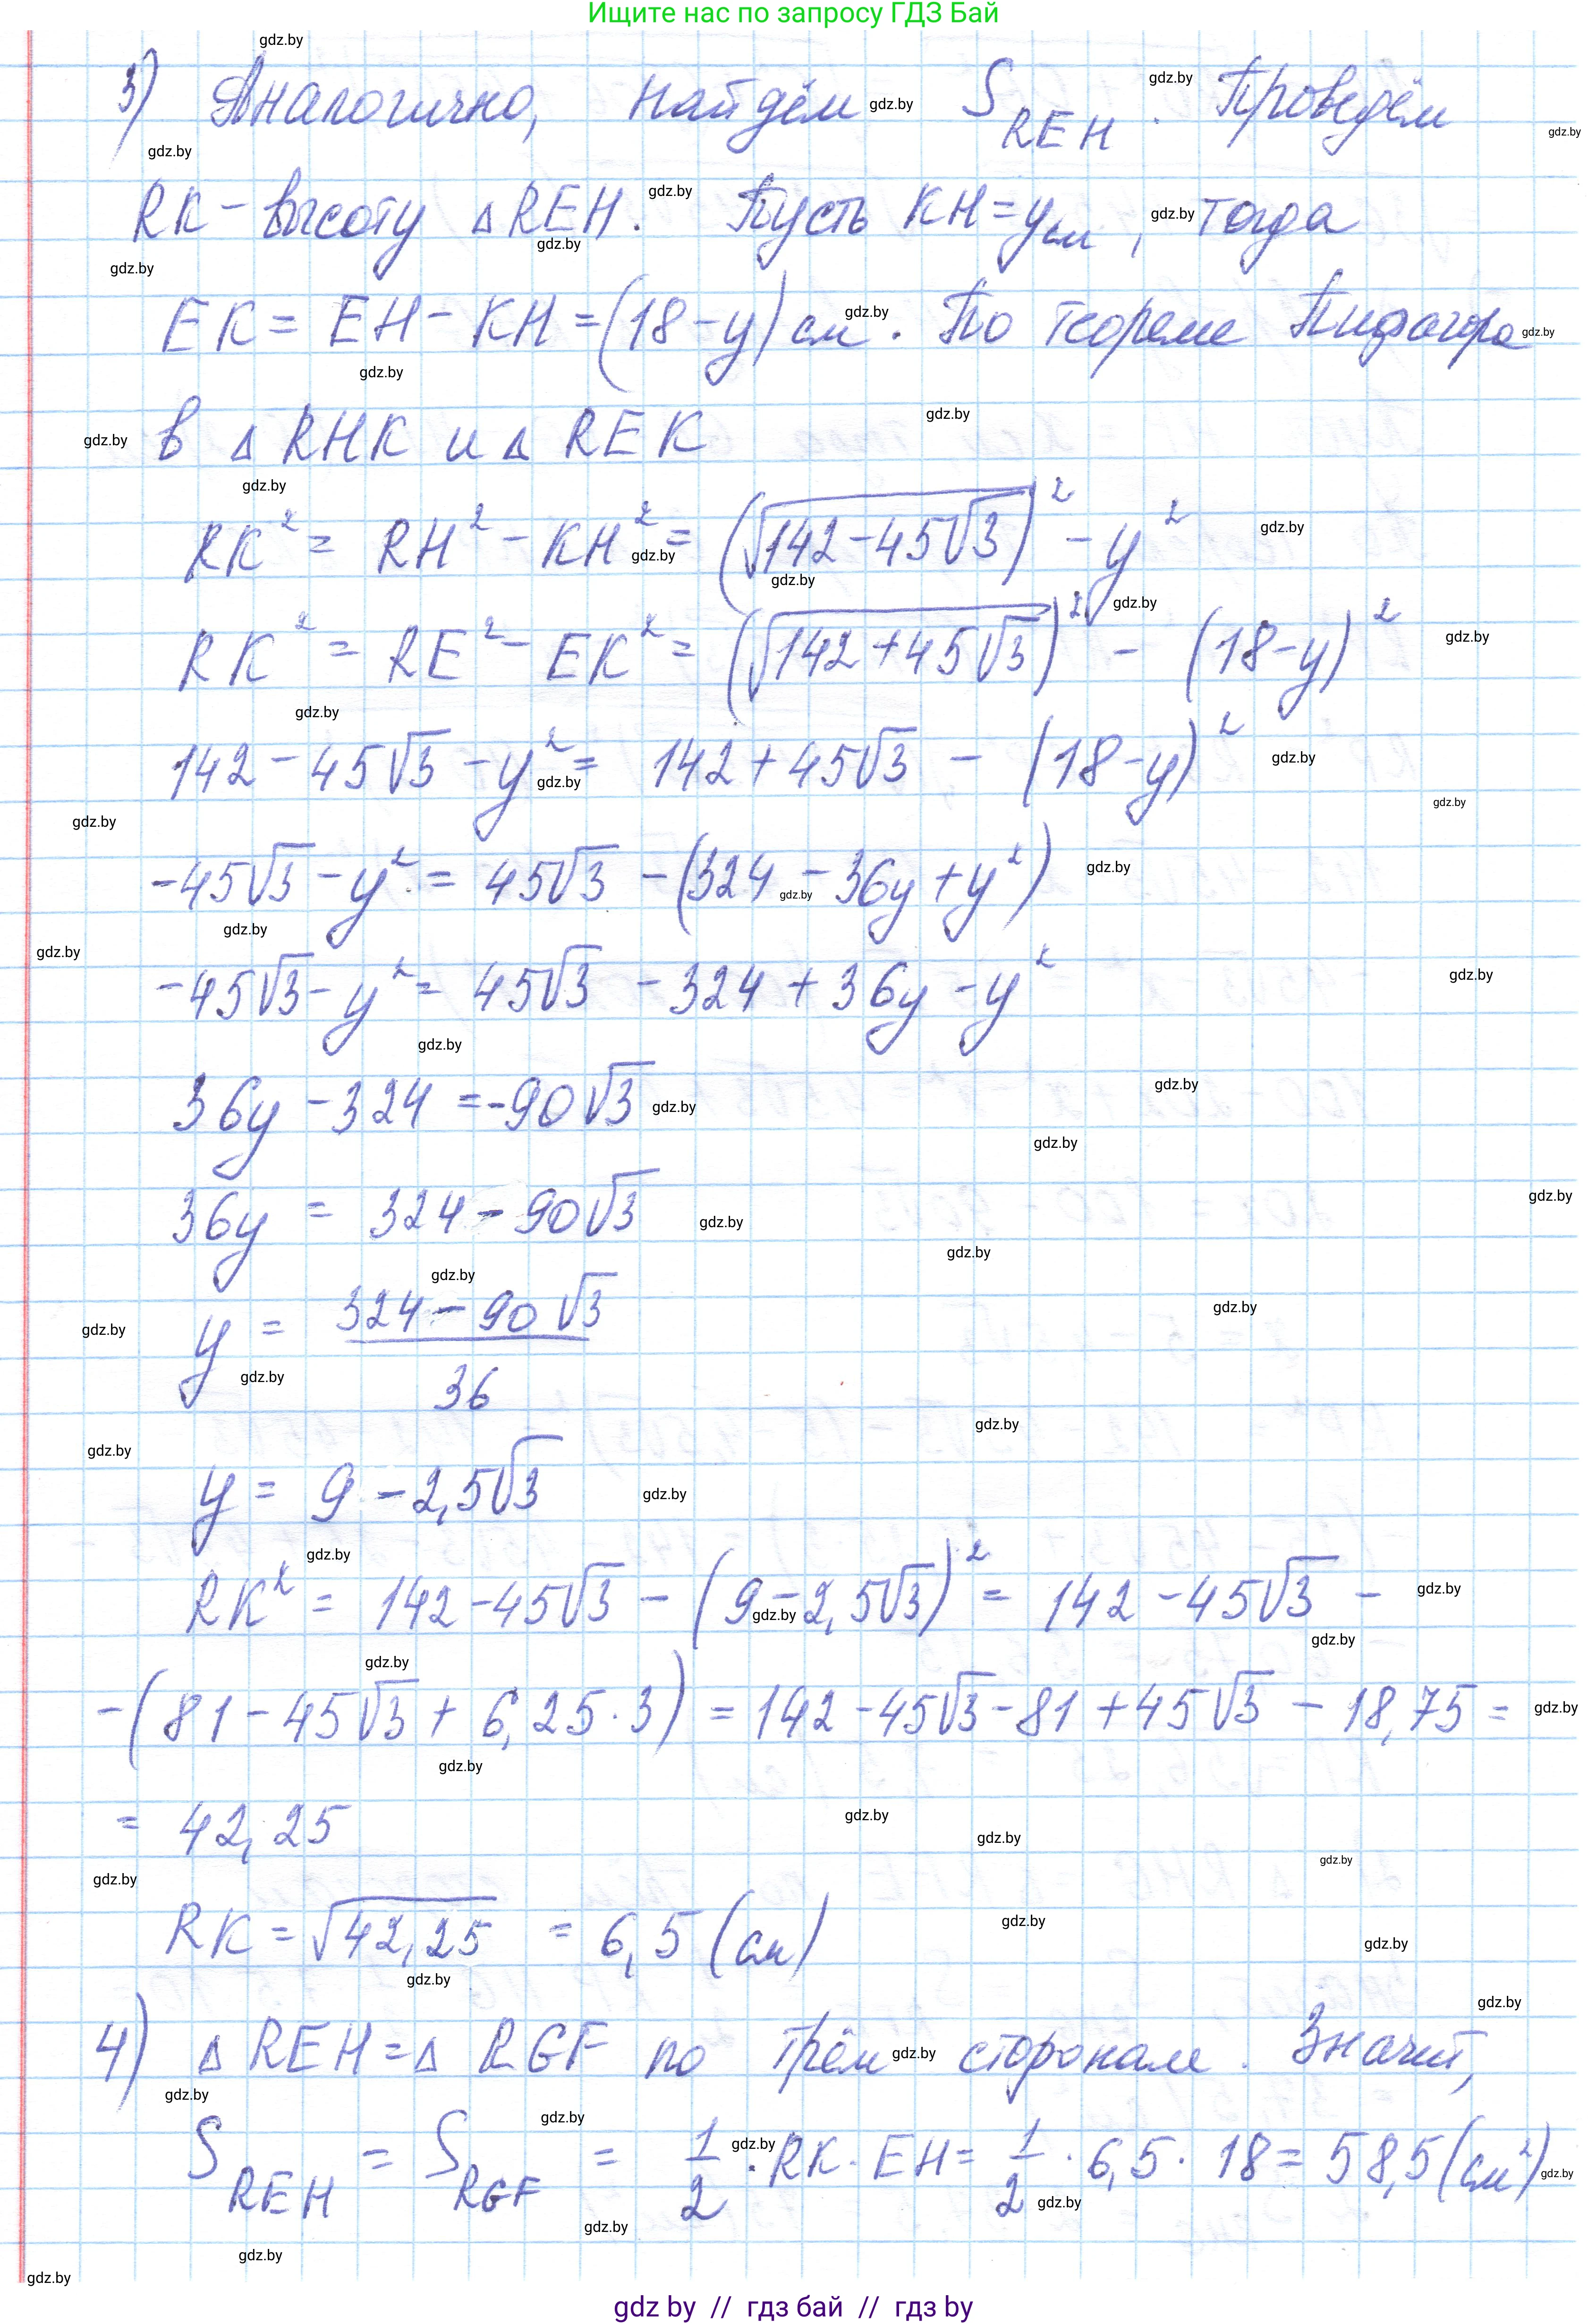 Ищите нас по запросу ГДЗ Бай
3) Аналогично, найдём S_REH. Проведём
RK – высоту △REH. Пусть KH = y см, тогда
EK = EH – KH = (18 – y) см. По теореме Пифагора
в △ RHK и △ REK
RK² = RH² – KH² = (√(142 – 45√3))² – y²
RK² = RE² – EK² = (√(142 + 45√3))² – (18 – y)²
142 – 45√3 – y² = 142 + 45√3 – (18 – y)²
–45√3 – y² = 45√3 – (324 – 36y + y²)
–45√3 – y² = 45√3 – 324 + 36y – y²
36y – 324 = –90√3
36y = 324 – 90√3
y = (324 – 90√3)/36
y = 9 – 2,5√3
RK² = 142 – 45√3 – (9 – 2,5√3)² = 142 – 45√3 –
– (81 – 45√3 + 6,25 · 3) = 142 – 45√3 – 81 + 45√3 – 18,75 =
= 42,25
RK = √42,25 = 6,5 (см)
4) △ REH = △ RGF по трём сторонам. Значит,
S_REH = S_RGF = 1/2 · RK · EH = 1/2 · 6,5 · 18 = 58,5 (см²)
gdz by // гдз бай // гдз by